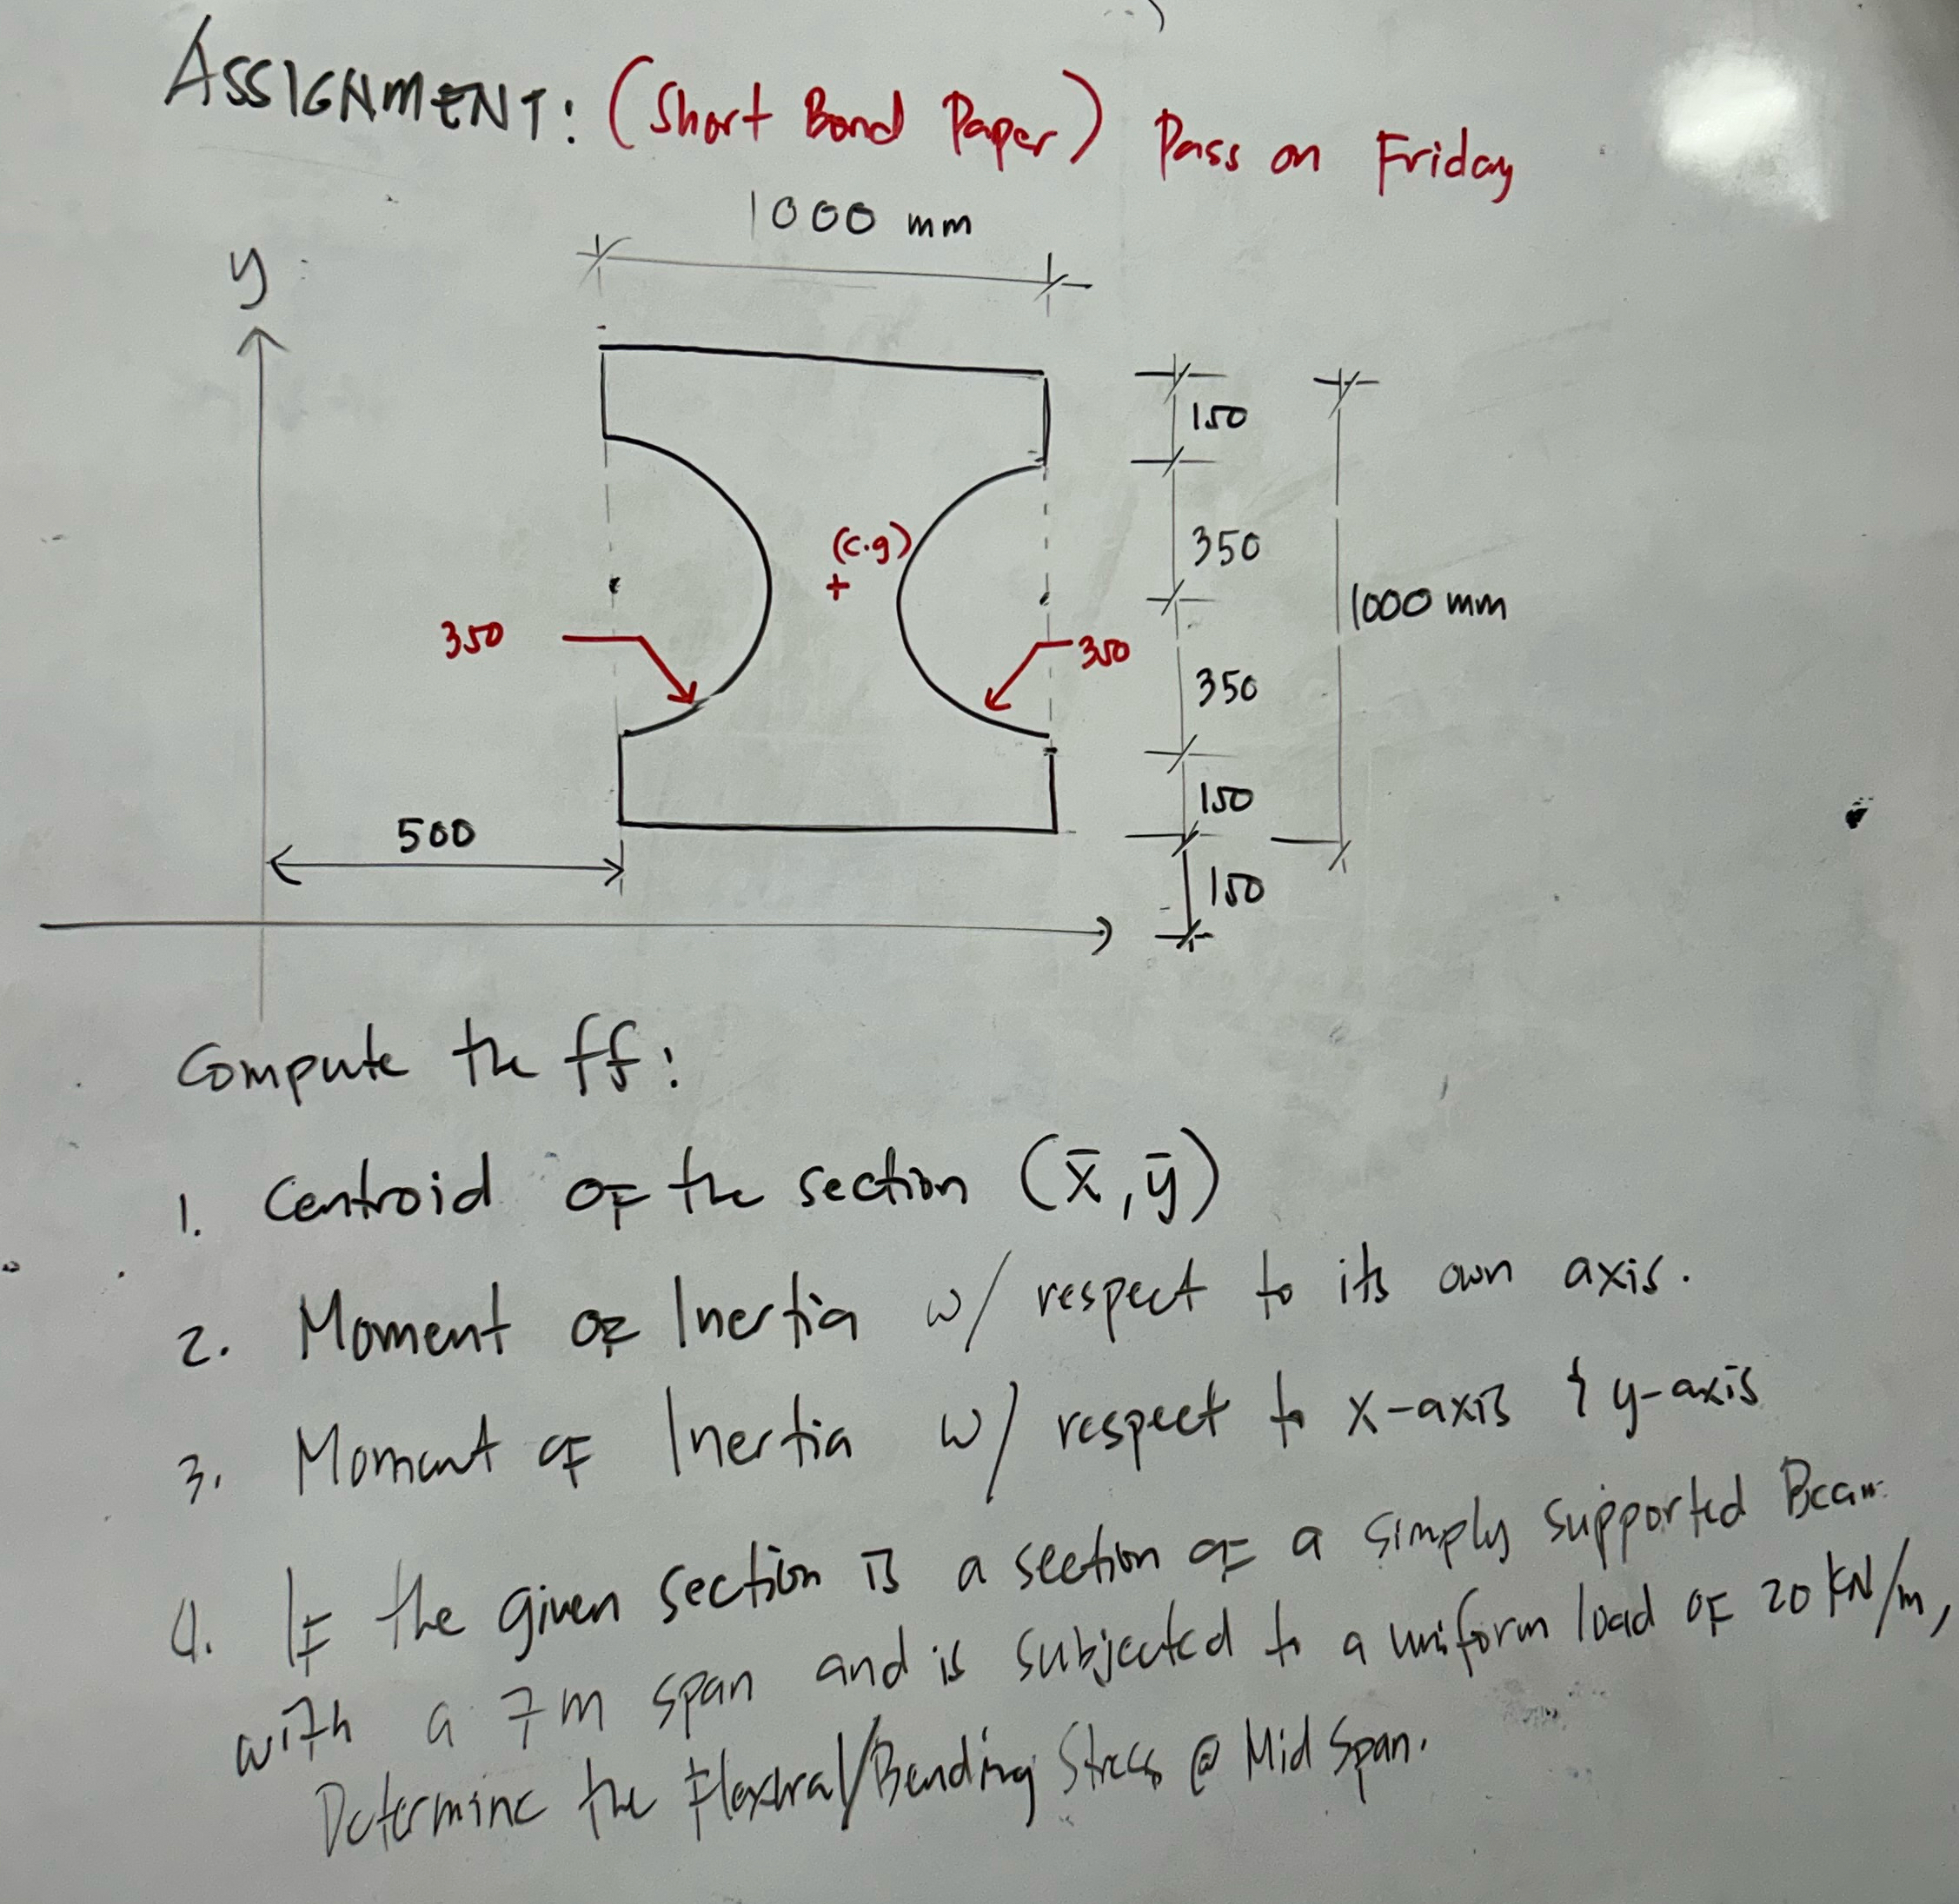 ASSIGNMENT: (Short Bond Paper) Pass on Friday
1000 mm
y
150
(c.g)
+
350
1000 mm
350
350
350
150
500
150
Compute the ff:
1. Centroid of the section (x̄, ȳ)
2. Moment of Inertia w/ respect to its own axis.
3. Moment of Inertia w/ respect to x-axis & y-axis
4. If the given section is a section of a simply supported Beam
with a 7m span and is subjected to a uniform load of 20 kN/m,
Determine the Flexural/Bending Stress @ Mid Span.